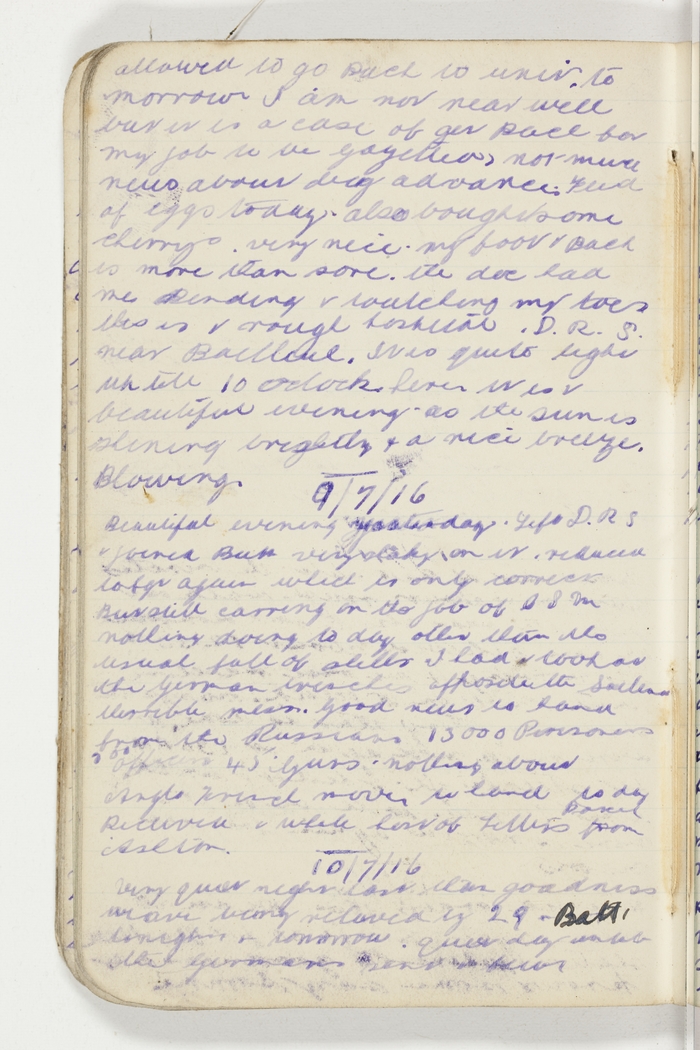 allowed to go back to unit. to
morrow I am not near well
but it is a case of get back for
my job to be gazetted, not much
news about big advance. Feed
of eggs today. also bought some
cherrys. very nice. my foot & back
is more than sore. the doc had
me bending & touching my toes
this is a rough hospital. D.R.S.
near Bailleul. It is quite light
up till 10 oclock here. it is a
beautiful evening as the sun is
shining brightly & a nice breeze.
Blowing.
9/7/16
Beautiful evening yesterday. Left D.R.S
& joined Batt very shaky on it. reduced
to Sgt again which is only correct
But still carring on the job of C S M
nothing doing to day other than the
usual fall of shells I had a look at
the German trenches opposite the
terrible mess. Good news to hand
from the Russians 13000 Prisoners
45 Guns. nothing about
Anglo French moves to hand to day
Received a whole host of letters & Parcel from
10/7/16
Very quiet night last thank goodness
we are being relieved by 29 - Batt.
tonight & tomorrow. quiet day until
the Germans sent a few